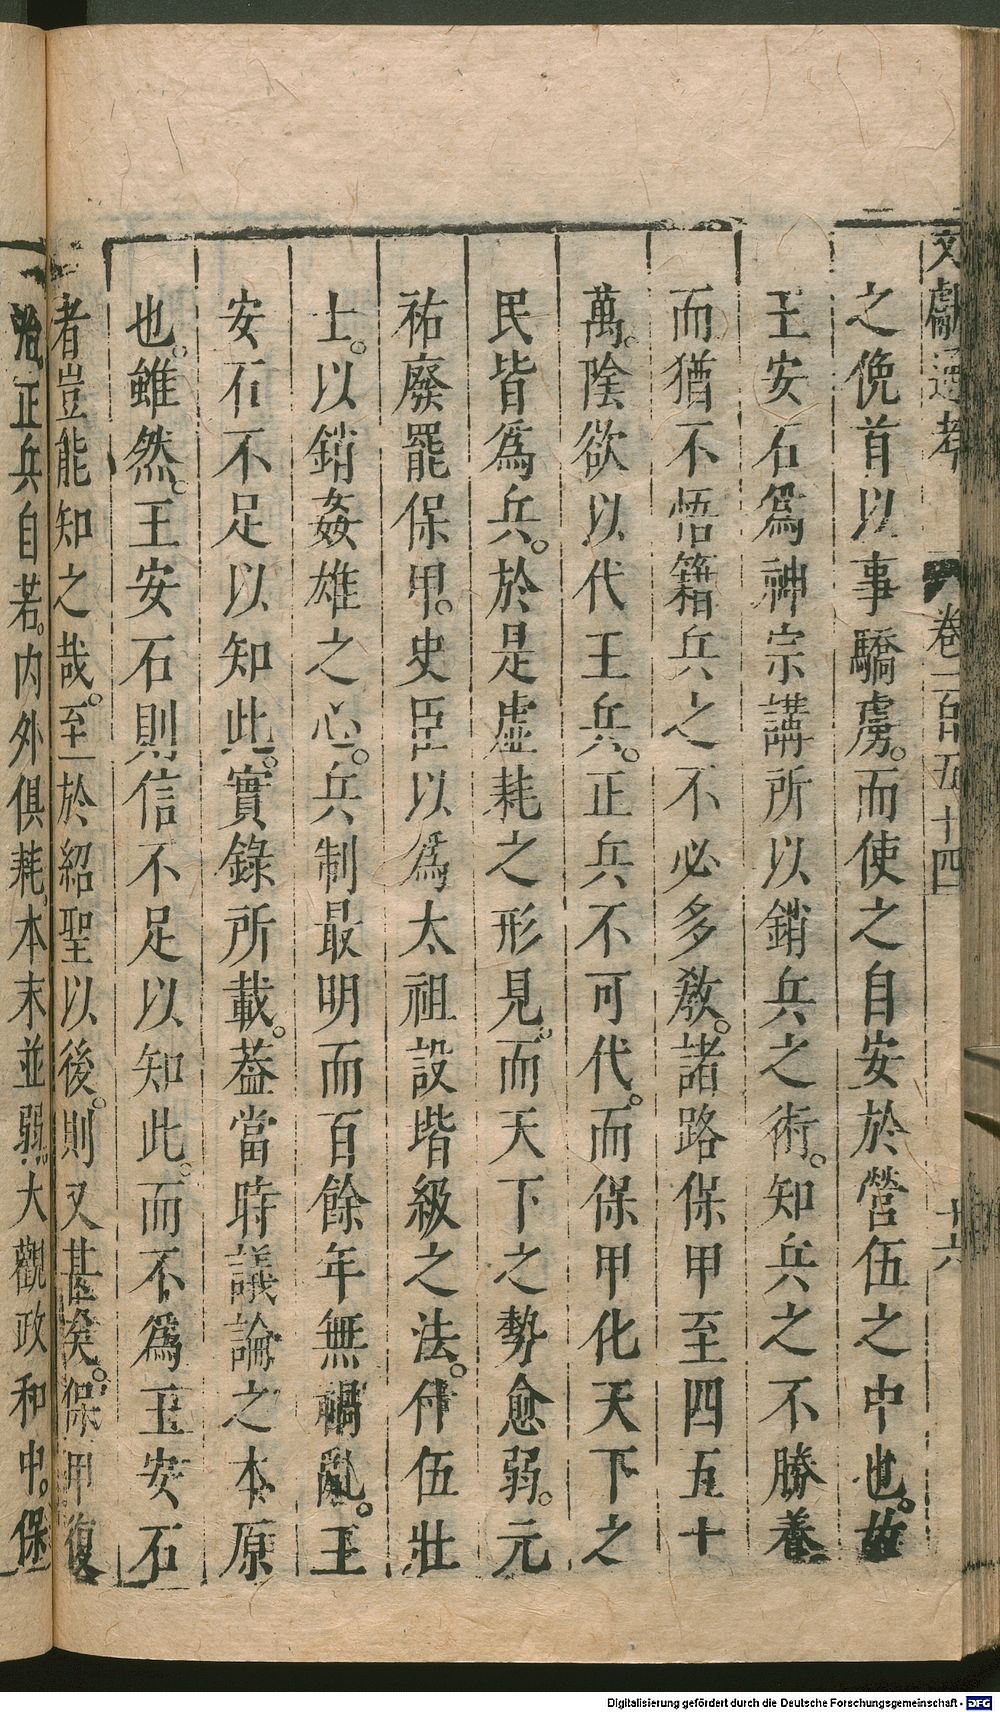 文獻通考 卷一百五十四 十六
之俛首以事驕虜。而使之自安於營伍之中也。故
王安石爲神宗講所以銷兵之術。知兵之不勝養
而猶不悟籍兵之不必多教。諸路保甲至四五十
萬。陰欲以代王兵。正兵不可代。而保甲化天下之
民皆爲兵。於是虛耗之形見。而天下之勢愈弱。元
祐廢罷保甲。史臣以爲太祖設堦級之法。什伍壯
士。以銷姦雄之心。兵制最明而百餘年無禍亂。王
安石不足以知此。實錄所載。蓋當時議論之本原
也。雖然。王安石則信不足以知此。而不爲王安石
者豈能知之哉。至於紹聖以後。則又甚矣。保甲復
治正兵自若。内外俱耗。本末並弱。大觀政和中。保
Digitalisierung gefördert durch die Deutsche Forschungsgemeinschaft - DFG